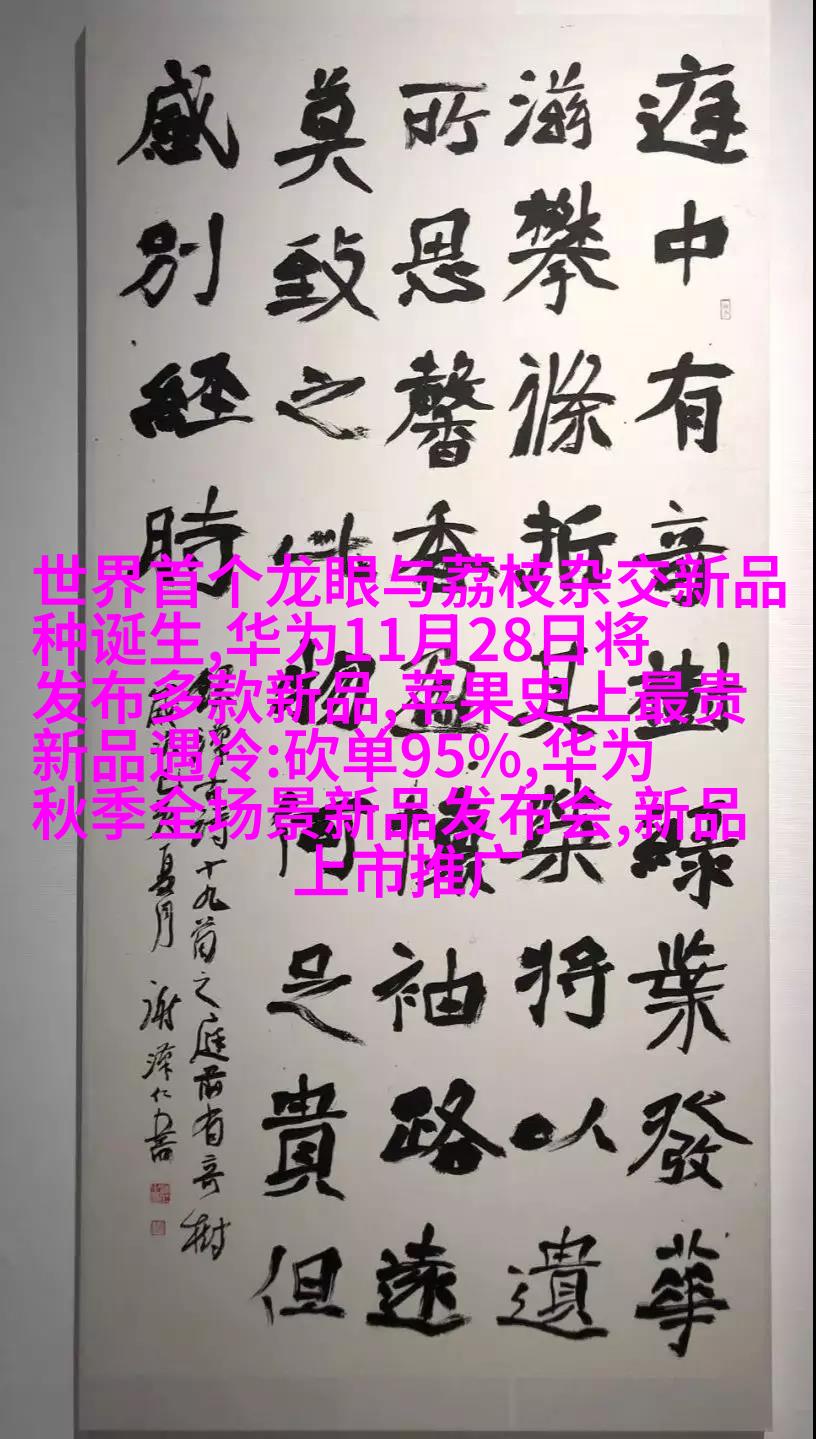 庭中有奇樹綠葉發華
滋攀條折其榮將以遺
所思馨香盈懷袖路遠
莫致之此物何足貴但
感別經時
古詩十九首之庭前有奇樹
夏月 謝澤仁書
世界首个龙眼与荔枝杂交新品
种诞生,华为11月28日将
发布多款新品,苹果史上最贵
新品遇冷:砍单95%,华为
秋季全场景新品发布会,新品
上市推广